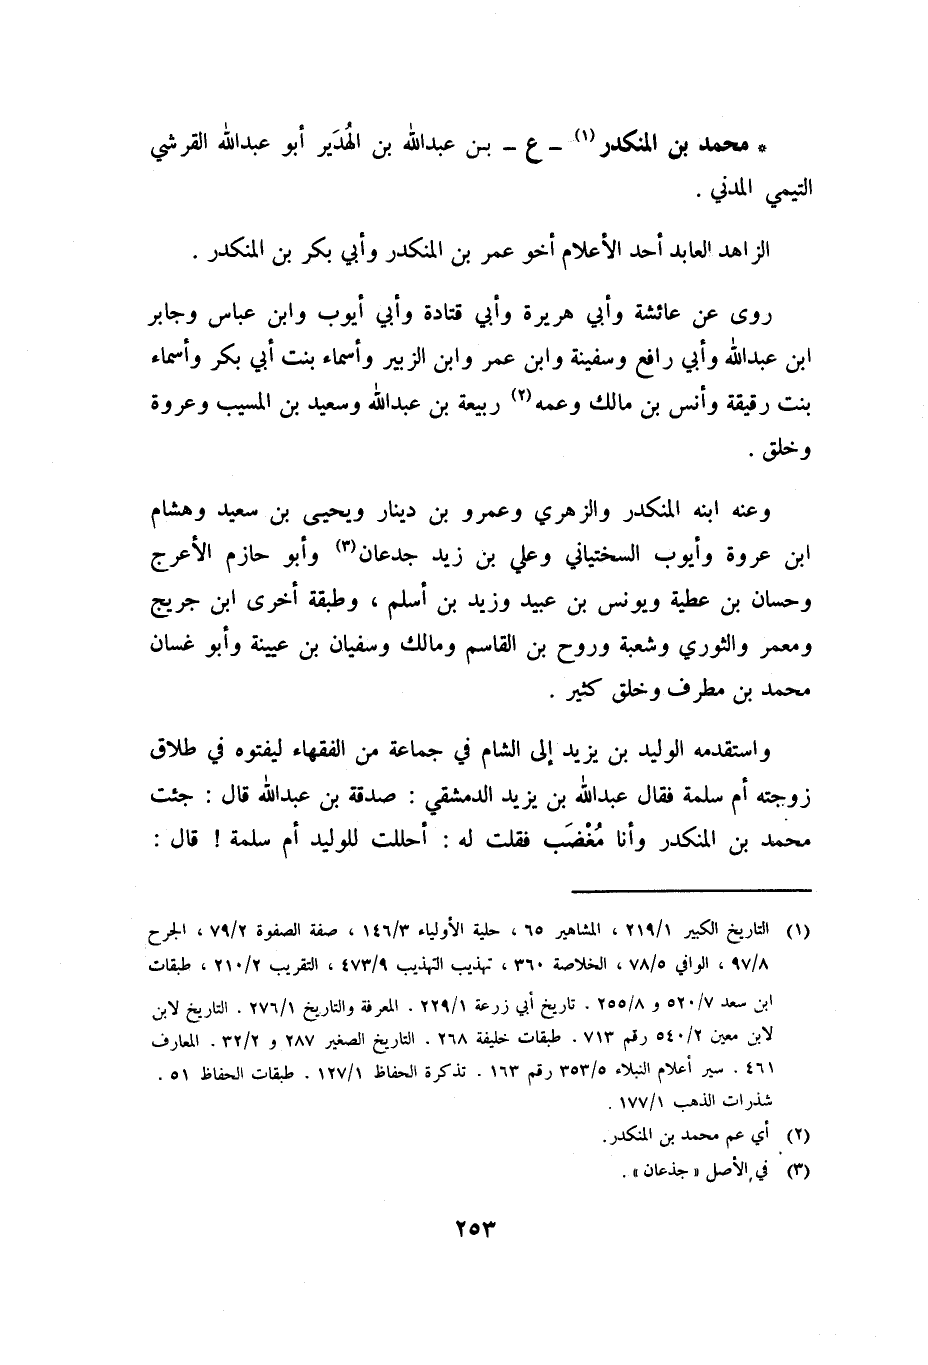 * محمد بن المنكدر(١) ـ ع ـ بن عبدالله بن الهُدَير أبو عبدالله القرشي
التيمي المدني .
الزاهد العابد أحد الأعلام أخو عمر بن المنكدر وأبي بكر بن المنكدر .
روى عن عائشة وأبي هريرة وأبي قتادة وأبي أيوب وابن عباس وجابر
ابن عبدالله وأبي رافع وسفينة وابن عمر وابن الزبير وأسماء بنت أبي بكر وأسماء
بنت رقيقة وأنس بن مالك وعمه(٢) ربيعة بن عبدالله وسعيد بن المسيب وعروة
وخلق .
وعنه ابنه المنكدر والزهري وعمرو بن دينار ويحيى بن سعيد وهشام
ابن عروة وأيوب السختياني وعلي بن زيد جدعان(٣) وأبو حازم الأعرج
وحسان بن عطية ويونس بن عبيد وزيد بن أسلم ، وطبقة أخرى ابن جريج
ومعمر والثوري وشعبة وروح بن القاسم ومالك وسفيان بن عيينة وأبو غسان
محمد بن مطرف وخلق كثير .
واستقدمه الوليد بن يزيد إلى الشام في جماعة من الفقهاء ليفتوه في طلاق
زوجته أم سلمة فقال عبدالله بن يزيد الدمشقي : صدقة بن عبدالله قال : جئت
محمد بن المنكدر وأنا مُغْضَب فقلت له : أحللت للوليد أم سلمة ! قال :
(١) التاريخ الكبير ٢١٩/١ ، المشاهير ٦٥ ، حلية الأولياء ١٤٦/٣ ، صفة الصفوة ٧٩/٢ ، الجرح
٩٧/٨ ، الوافي ٧٨/٥ ، الخلاصة ٣٦٠ ، تهذيب التهذيب ٤٧٣/٩ ، التقريب ٢١٠/٢ ، طبقات
ابن سعد ٥٢٠/٧ و ٢٥٥/٨ . تاريخ أبي زرعة ٢٢٩/١ . المعرفة والتاريخ ٢٧٦/١ . التاريخ لابن
لابن معين ٥٤٠/٢ رقم ٧١٣ . طبقات خليفة ٢٦٨ . التاريخ الصغير ٢٨٧ و ٣٢/٢ . المعارف
٤٦١ . سير أعلام النبلاء ٣٥٣/٥ رقم ١٦٣ . تذكرة الحفاظ ١٢٧/١ . طبقات الحفاظ ٥١ .
شذرات الذهب ١٧٧/١ .
(٢) أي عم محمد بن المنكدر.
(٣) في الأصل « جذعان » .
٢٥٣